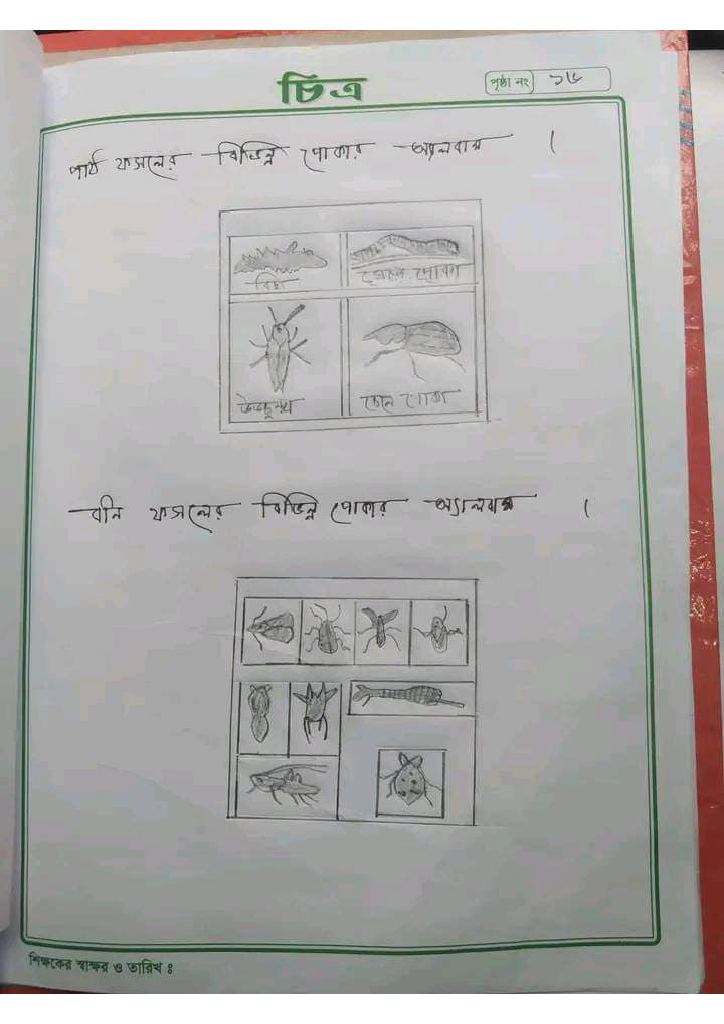 চিত্র
পৃষ্ঠা নং ১৬
পাট ফসলের বিভিন্ন পোকার অ্যালবাম ।
বিছা
ঘোড়া পোকা
উড়চুঙ্গা
চেলে পোকা
ধান ফসলের বিভিন্ন পোকার অ্যালবাম ।
শিক্ষকের স্বাক্ষর ও তারিখ ঃ